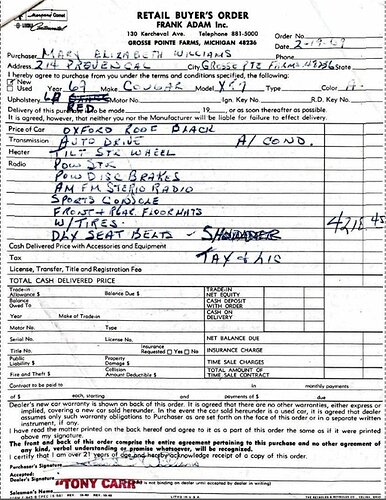 Mercury Comet
Continental
RETAIL BUYER'S ORDER
FRANK ADAM Inc.
130 Kercheval Ave. Telephone 881-5000
GROSSE POINTE FARMS, MICHIGAN 48236
Order No.
Date 2-19-69
Purchaser MARY ELIZABETH WILLIAMS Phone
Address 214 PROVENCAL City GROSSE PTE FARMS 48236 State
I hereby agree to purchase from you under the terms and conditions specified, the following:
New
Used Year 69 Make COUGAR Model Type Color
Upholstery RED Motor No. Ign. Key No. R.D. Key No.
Delivery of this purchase to be made 19 , or as soon thereafter as possible.
It is agreed, however, that neither you nor the Manufacturer will be liable for failure to effect delivery.
Price of Car OXFORD ROOF BLACK
Transmission AUTO DRIVE A/COND.
Heater TILT STR WHEEL
Radio POW STR
POW DISC BRAKES
AM FM STERIO RADIO
SPORTS CONSOLE
FRONT & REAR FLOOR MATS
W/TIRES. 4218 45
DLX SEAT BELTS - SHOULDER
Cash Delivered Price with Accessories and Equipment
Tax TAX & LIC
License, Transfer, Title and Registration Fee
TOTAL CASH DELIVERED PRICE
Trade-in Allowance $ Balance Due $ TRADE-IN NET EQUITY
Balance Owed To CASH DEPOSIT WITH ORDER
Year Make of Trade-in CASH ON DELIVERY
Motor No. Type
Serial No. License No. NET BALANCE DUE
Title No. Insurance Requested Yes No INSURANCE CHARGE
Public Liability $ Property Damage $ TIME SALE CHARGES
Fire and Theft $ Collision Amount Deductible $ TOTAL AMOUNT OF TIME SALE CONTRACT
Contract to be paid in monthly payments
of $ each, starting and payments of $ due
Dealer's new car warranty is shown on back of this order. It is agreed that there are no other warranties, either express or
implied, covering a new car sold hereunder. In the event the car sold hereunder is a used car, it is agreed that dealer
assumes only such warranty obligations to Purchaser as are set forth on the face of this order or in a separate written
instrument, if any.
I have read the matter printed on the back hereof and agree to it as a part of this order the same as if it were printed
above my signature.
The front and back of this order comprise the entire agreement pertaining to this purchase and no other agreement of
any kind, verbal understanding or promise whatsoever, will be recognized.
I certify that I am over 21 years of age and hereby acknowledge receipt of a copy of this order.
Purchaser's Signature
Accepted:
Dealer's Signature
is not binding on dealer until accepted by dealer in writing
Salesman's Name "TONY CARR"
LITHO IN U.S.A.